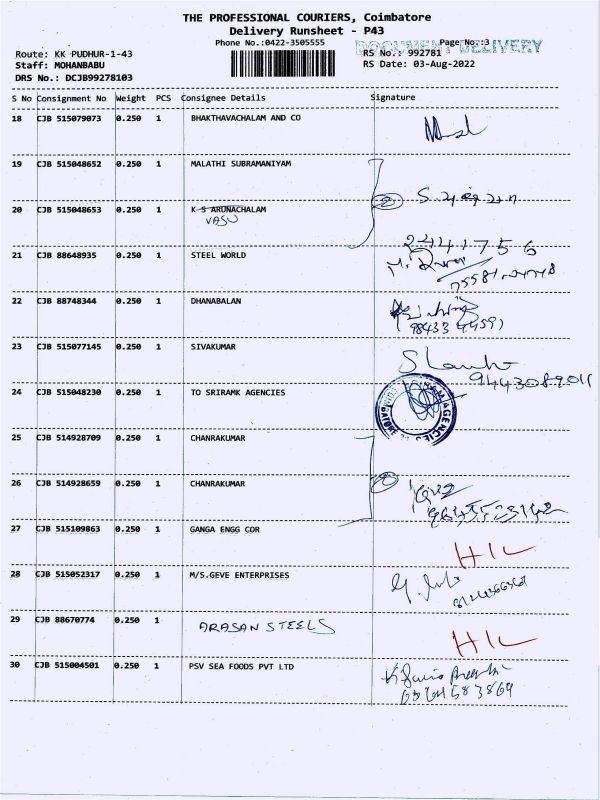 THE PROFESSIONAL COURIERS, Coimbatore
Delivery Runsheet - P43
Phone No.:0422-3505555
DOCUMENT DELIVERY
Page No.:3
Route: KK PUDHUR-1-43
RS No.: 992781
Staff: MOHANBABU
RS Date: 03-Aug-2022
DRS No.: DCJB99278103
S No Consignment No Weight PCS Consignee Details Signature
18 CJB 515079073 0.250 1 BHAKTHAVACHALAM AND CO
19 CJB 515048652 0.250 1 MALATHI SUBRAMANIYAM
20 CJB 515048653 0.250 1 K S ARUNACHALAM
VASU
2
2441756
21 CJB 88648935 0.250 1 STEEL WORLD
22 CJB 88748344 0.250 1 DHANABALAN
23 CJB 515077145 0.250 1 SIVAKUMAR
24 CJB 515048230 0.250 1 TO SRIRAMK AGENCIES
AGENCIES
25 CJB 514928709 0.250 1 CHANRAKUMAR
26 CJB 514928659 0.250 1 CHANRAKUMAR
27 CJB 515109863 0.250 1 GANGA ENGG COR
HIL
28 CJB 515052317 0.250 1 M/S.GEVE ENTERPRISES
29 CJB 88670774 0.250 1 ARASAN STEELS
HIL
30 CJB 515004501 0.250 1 PSV SEA FOODS PVT LTD